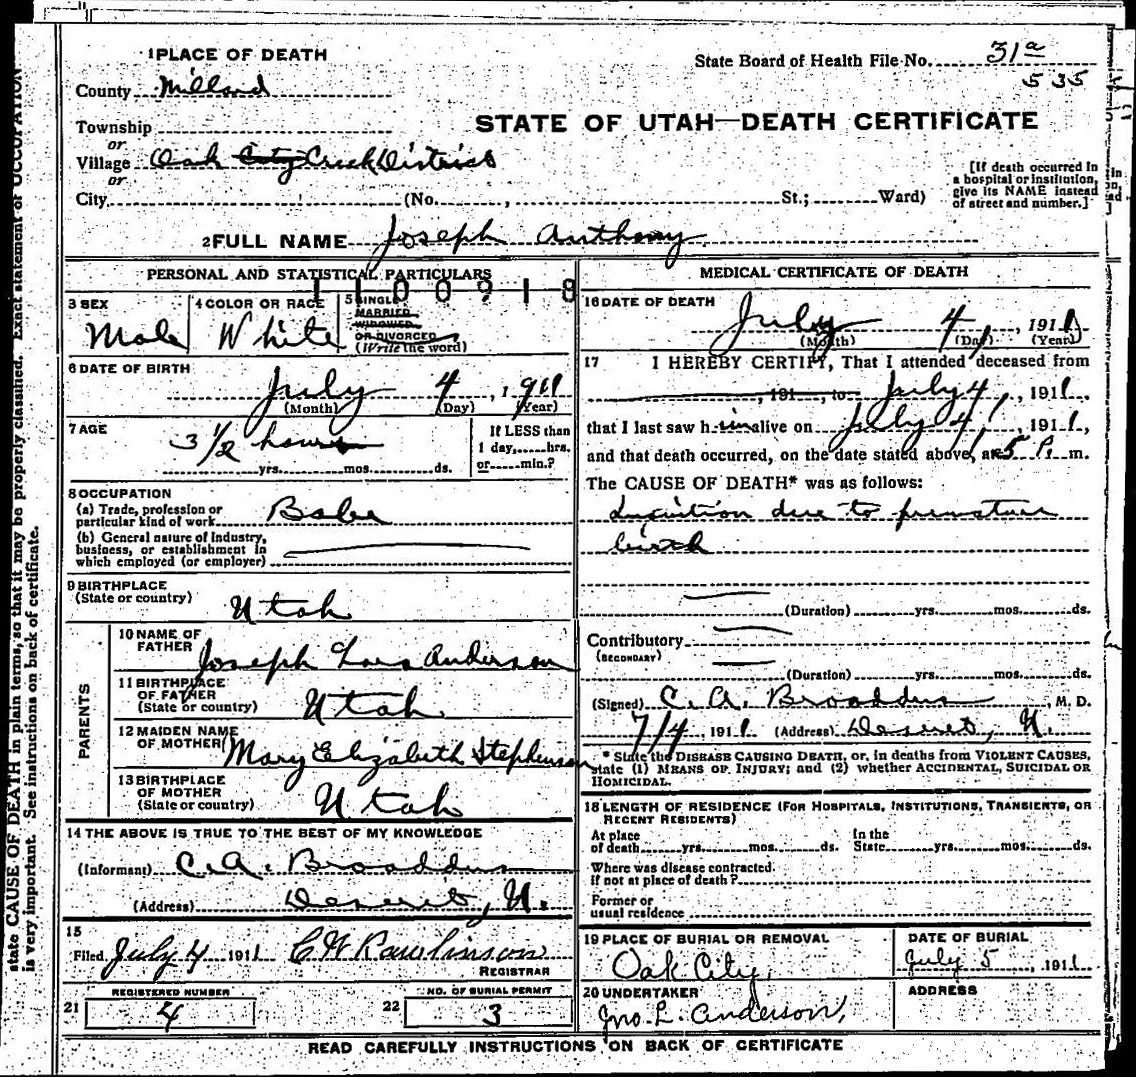 1 PLACE OF DEATH
State Board of Health File No. 31a
535
County Millard
STATE OF UTAH—DEATH CERTIFICATE
Township
or
Village Oak City Creek District
or
City (No. , St.; Ward)
[If death occurred in
a hospital or institution,
give its NAME instead
of street and number.]
2 FULL NAME Joseph Anthony
PERSONAL AND STATISTICAL PARTICULARS
1100918
3 SEX
Male
4 COLOR OR RACE
White
5 SINGLE
MARRIED
WIDOWED
OR DIVORCED
(Write the word)
6 DATE OF BIRTH
July 4, 1911
(Month) (Day) (Year)
7 AGE
3 1/2 hours
yrs. mos. ds.
If LESS than
1 day, hrs.
or min.?
8 OCCUPATION
(a) Trade, profession or
particular kind of work Babe
(b) General nature of Industry,
business, or establishment in
which employed (or employer)
9 BIRTHPLACE
(State or country) Utah
PARENTS
10 NAME OF
FATHER Joseph Anderson
11 BIRTHPLACE
OF FATHER
(State or country) Utah
12 MAIDEN NAME
OF MOTHER Mary Elizabeth Stephenson
13 BIRTHPLACE
OF MOTHER
(State or country) Utah
14 THE ABOVE IS TRUE TO THE BEST OF MY KNOWLEDGE
(Informant) C. A. Broaddus
(Address) Deseret, U.
15
Filed July 4 1911 C W Rawlinson
REGISTRAR
REGISTERED NUMBER
21 4
NO. OF BURIAL PERMIT
22 3
MEDICAL CERTIFICATE OF DEATH
16 DATE OF DEATH
July 4, 1911
(Month) (Day) (Year)
17 I HEREBY CERTIFY, That I attended deceased from
, 191 , to July 4, 1911,
that I last saw him alive on July 4, 1911,
and that death occurred, on the date stated above, at 5 P. m.
The CAUSE OF DEATH* was as follows:
Inanition due to premature
birth
(Duration) yrs. mos. ds.
Contributory
(SECONDARY)
(Duration) yrs. mos. ds.
(Signed) C. A. Broaddus, M. D.
7/4, 1911 (Address) Deseret, U.
* State the DISEASE CAUSING DEATH, or, in deaths from VIOLENT CAUSES,
state (1) MEANS OF INJURY; and (2) whether ACCIDENTAL, SUICIDAL OR
HOMICIDAL.
18 LENGTH OF RESIDENCE (FOR HOSPITALS, INSTITUTIONS, TRANSIENTS, OR
RECENT RESIDENTS)
At place
of death yrs. mos. ds.
In the
State yrs. mos. ds.
Where was disease contracted,
if not at place of death?
Former or
usual residence
19 PLACE OF BURIAL OR REMOVAL
Oak City,
DATE OF BURIAL
July 5, 1911
20 UNDERTAKER
Jno. L. Anderson,
ADDRESS
READ CAREFULLY INSTRUCTIONS ON BACK OF CERTIFICATE
state CAUSE OF DEATH in plain terms, so that it may be properly classified. Exact statement of OCCUPATION
is very important. See instructions on back of certificate.